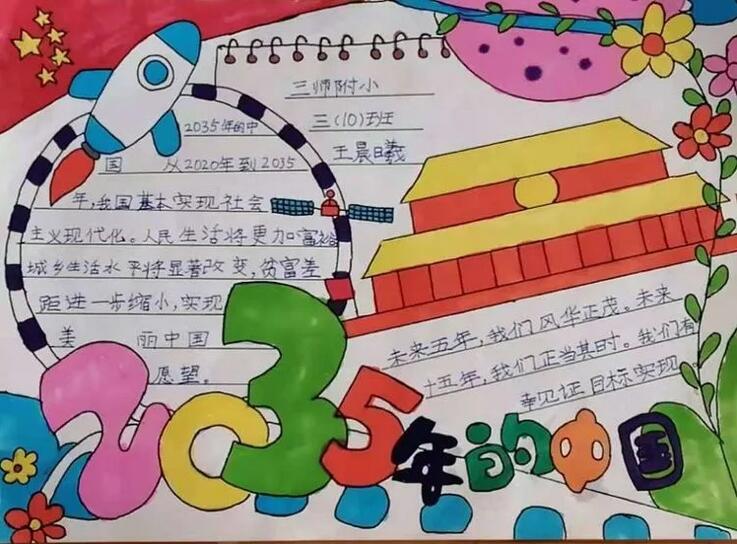 三师附小
三(10)班
王晨曦
2035年的中
国 从2020年到2035
年,我国基本实现社会
主义现代化。人民生活将更加富裕
城乡生活水平将显著改变,贫富差
距进一步缩小,实现
美 丽中国
愿望。
未来五年,我们风华正茂。未来
十五年,我们正当其时。我们有
幸见证目标实现
2035年的中国